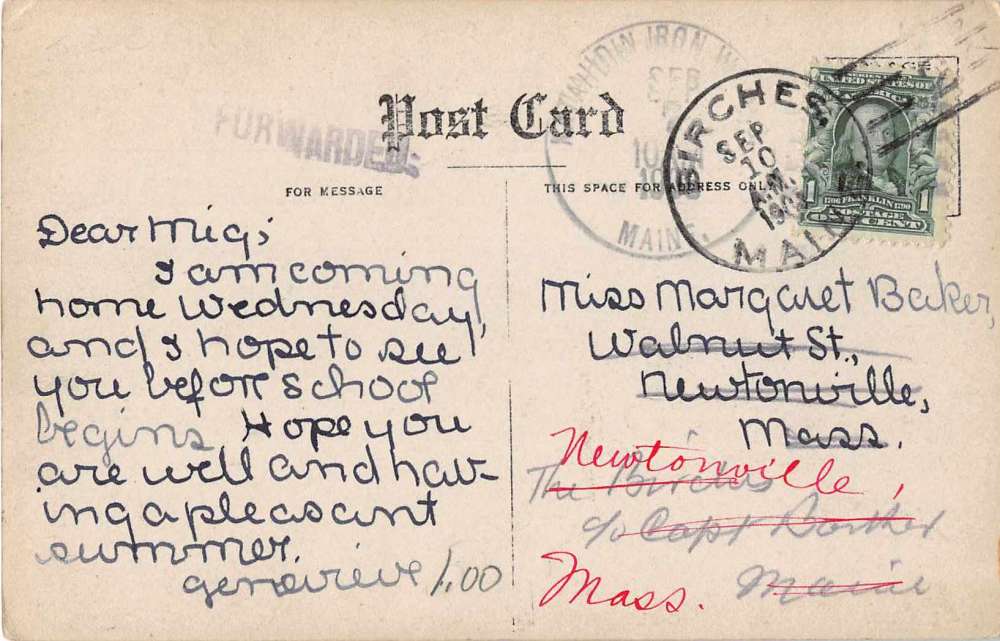 KATAHDIN IRON
SEP
MAINE.
BIRCHES
SEP
10
A.M.
MAINE
UNITED STATES OF AMERICA
1706 FRANKLIN 1790
1 POSTAGE 1
ONE CENT
Post Card
FORWARDED
FOR MESSAGE
THIS SPACE FOR ADDRESS ONLY
Dear Mig;
I am coming
home Wednesday,
and I hope to see
you before school
begins. Hope you
are well and hav-
ing a pleasant
summer.
Genevieve
1.00
Miss Margaret Baker,
Walnut St.,
Newtonville,
Mass.
Newtonville,
The Birches
c/o Capt
Mass. Maine